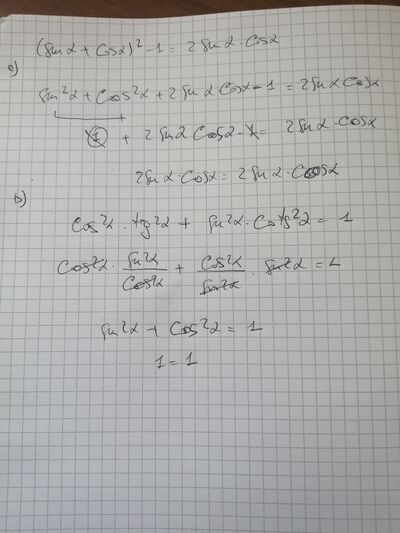 a) (sin α + cos α)² - 1 = 2 sin α · cos α
sin²α + cos²α + 2 sin α cos α - 1 = 2 sin α cos α
1 + 2 sin α cos α - 1 = 2 sin α · cos α
2 sin α · cos α = 2 sin α · cos α
b)
cos²α · tg²α + sin²α · cotg²α = 1
cos²α · sin²α/cos²α + cos²α/sin²α · sin²α = 1
sin²α + cos²α = 1
1 = 1